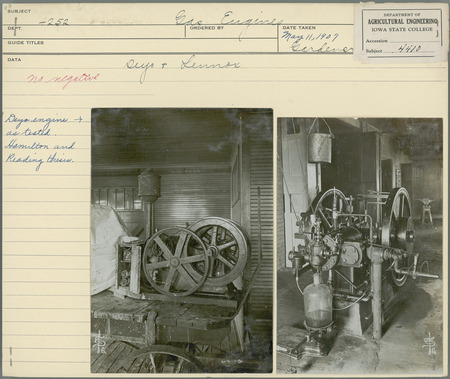 SUBJECT
-252
Gas Engines
DEPT.
ORDERED BY
DATE TAKEN
May 11, 1907
GUIDE TITLES
DEPARTMENT OF
AGRICULTURAL ENGINEERING
IOWA STATE COLLEGE
Accession
Subject 4410
DATA
Deyo & Lennox
no negative
Deyo engine →
as tested.
Hamilton and
Reading thesis.